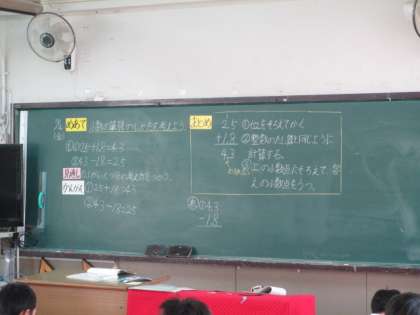 めあて 小数の筆算のしかたを考えよう。
①2.5+1.8=4.3
②4.3-1.8=2.5
見通し
かんたん ①25+18=43
②43-18=25
まとめ
2.5
+1.8
4.3
①位をそろえてかく
②整数のたし算と同じように
計算する。
③上の小数点にそろえて、答
えの小数点をうつ。
②4.3
-1.8